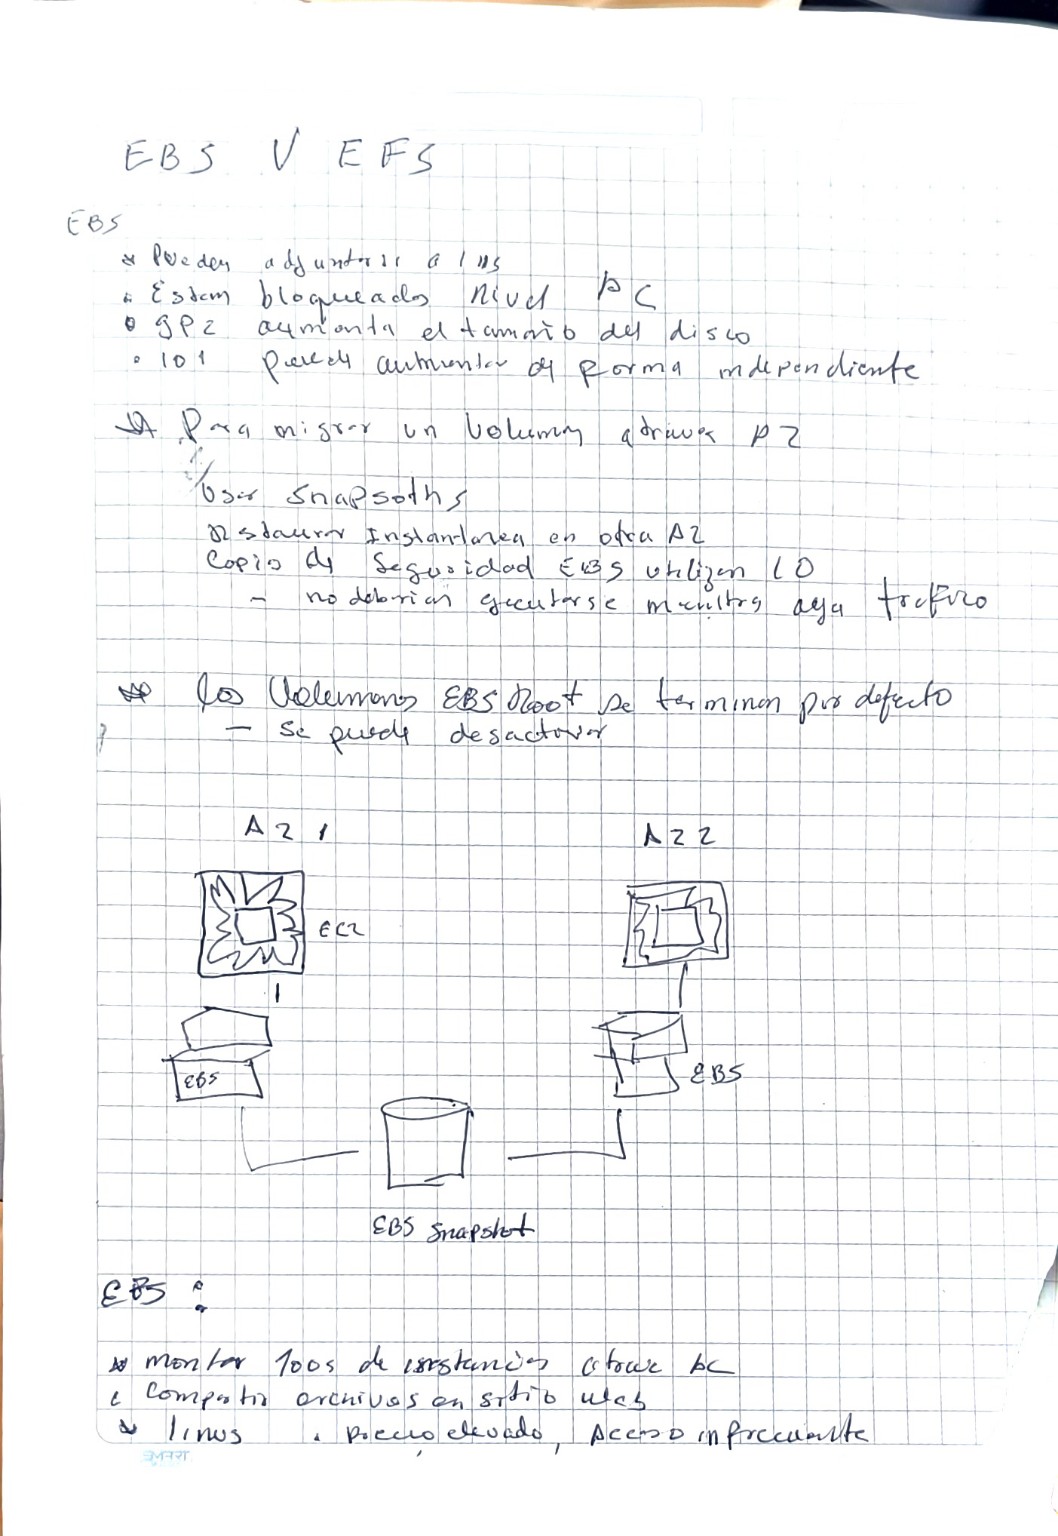 EBS V EFS
EBS
* Pueden adjuntarse a ins
• Estan bloqueados nivel AC
• gp2 aumenta el tamaño del disco
• IO1 puede aumentar de forma independiente
* Para migrar un Volumen atraves AZ
Usar Snapsoths
Restaurar Instantanea en otra AZ
Copia de Seguridad EBS utilizan IO
- no deberian ejecutarse mientras aya trafico
* los Volumenes EBS Root se terminan por defecto
- Se puede desactivar
AZ 1
AZ 2
EC2
EBS
EBS
EBS Snapshot
EBS :
* montar 100s de instancias atraves AC
• Compartir archivos en sitio web
* linus • precio elevado, Acceso infrecuente